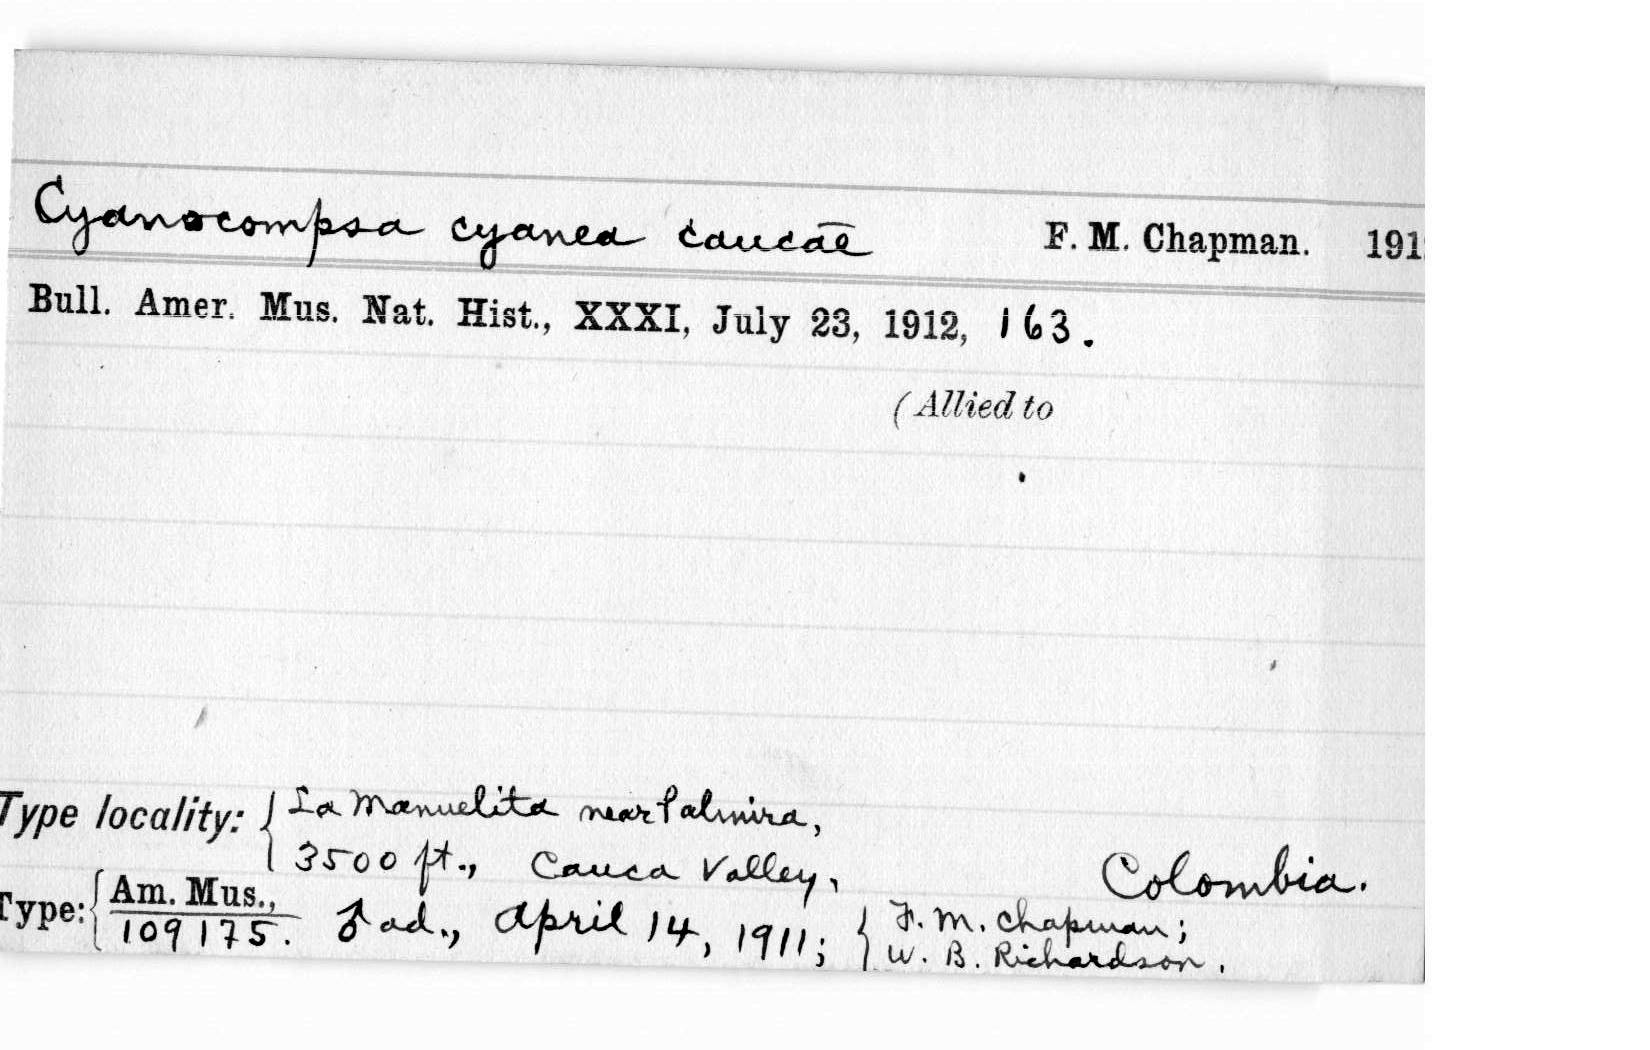 Cyanocompsa cyanea caucae F. M. Chapman. 191
Bull. Amer. Mus. Nat. Hist., XXXI, July 23, 1912, 163.
(Allied to
Type locality: { La Manuelita near Palmira,
3500 ft., Cauca Valley, Colombia.
Type: { Am. Mus., 109175. ♂ ad., April 14, 1911; { F. M. Chapman;
W. B. Richardson.